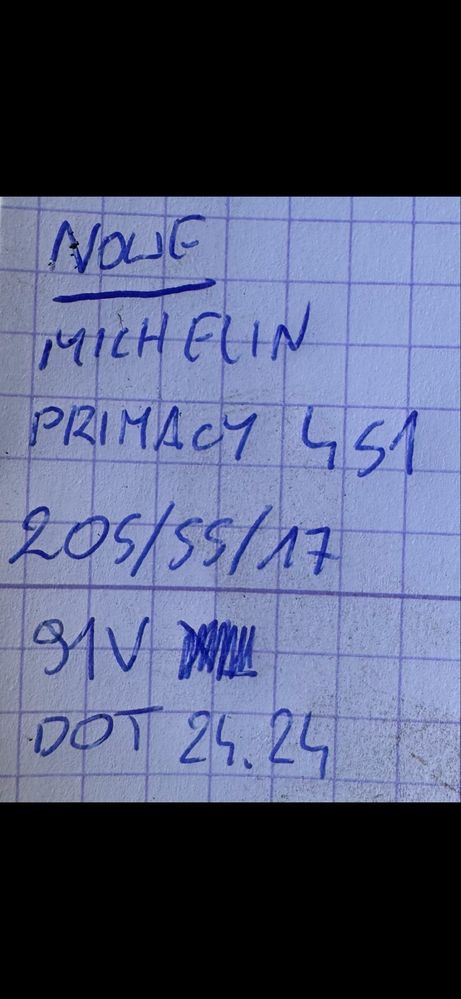 NOWE
MICHELIN
PRIMACY 4 S1
205/55/17
91V
DOT 24.24